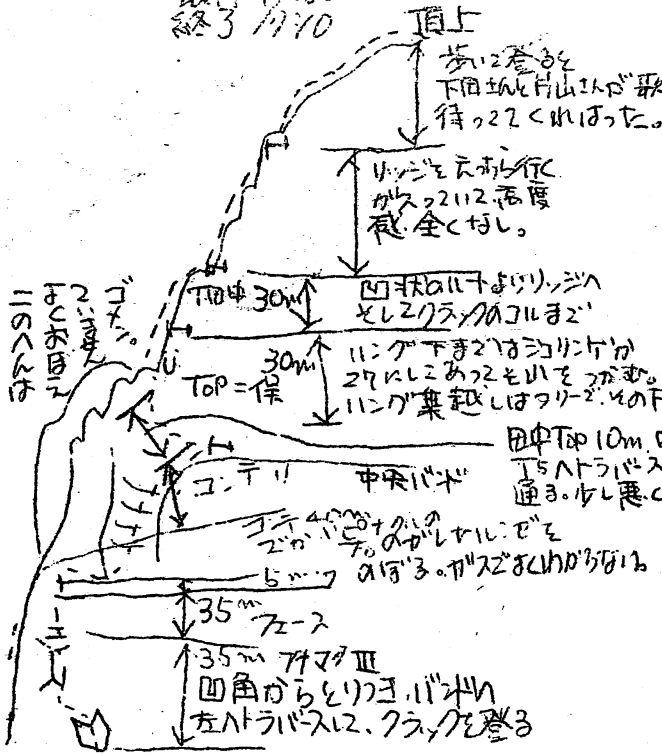 終了 17:10
頂上
歩いて登ると
下田さんと片山さんが
待っててくればった。
リッジを えっちら行く
がスっていて高度
感全くなし。
T田中 30m
凹状のルートよりリッジへ
そしてクラックのコルまで
30m
TOP=俣
ハング下まではシュリンゲが
つかむ。
ハング乗越しはフリーで、その下
ゴメン。
ていません
よくおぼえ
このへんは
田中TOP 10m
T5へトラバース
通る。少し悪く
コンテ
中央バンド
コンテ 45m
のガレたルンゼを
のぼる。ガスでよくわからない。
35m フェース
35m III
凹角からとりつき、バンドへ
左へトラバースして、クラックを登る